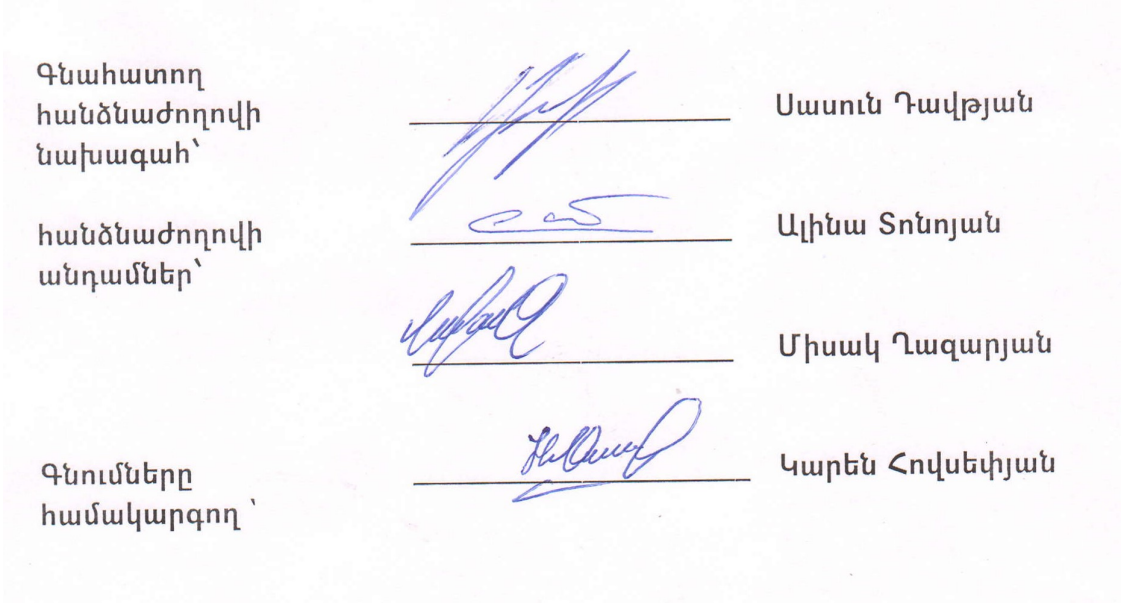 Գնահատող
հանձնաժողովի
նախագահ՝
Սասուն Դավթյան
հանձնաժողովի
անդամներ՝
Ալինա Տոնոյան
Միսակ Ղազարյան
Գնումները
համակարգող ՝
Կարեն Հովսեփյան